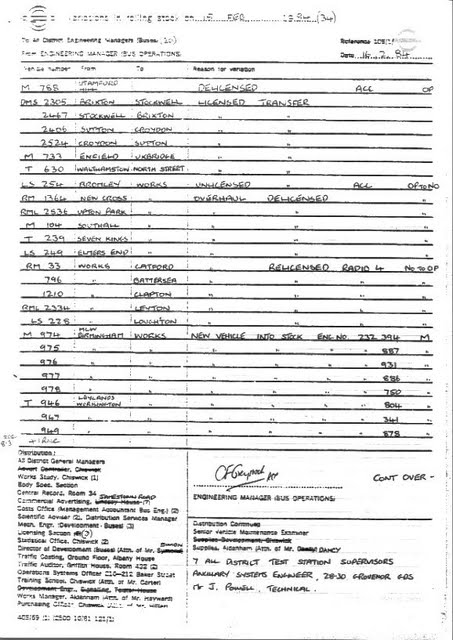 Variations in rolling stock on 15 FEB 1984 (34)
To All District Engineering Managers (Buses)
Reference
From ENGINEERING MANAGER (BUS OPERATIONS)
Date 16.2.84
Vehicle Number From To Reason for variation
M 788 STAMFORD DELICENSED ACC OP
DMS 2305 BRIXTON STOCKWELL LICENSED TRANSFER
2467 STOCKWELL BRIXTON " "
2406 SUTTON CROYDON " "
2524 CROYDON SUTTON " "
M 733 ENFIELD UXBRIDGE " "
T 630 WALTHAMSTOW NORTH STREET " "
LS 254 BROMLEY WORKS UNLICENSED ACC OP TO NO
RM 1364 NEW CROSS " OVERHAUL DELICENSED "
RML 2536 UPTON PARK " " " "
M 104 SOUTHALL " " " "
T 239 SEVEN KINGS " " " "
LS 249 ELMERS END " " " "
RM 33 WORKS CATFORD " RELICENSED RADIO 4 NO TO OP
796 " BATTERSEA " " "
1210 " CLAPTON " " "
RML 2334 " LEYTON " " "
LS 228 " LOUGHTON " " "
M 974 MCW BIRMINGHAM WORKS NEW VEHICLE INTO STOCK ENG NO. 232 394 M
975 " " " " 887 "
976 " " " " 931 "
977 " " " " 886 "
978 " " " " 750 "
T 946 LEYLANDS WORKINGTON " " " 804 "
947 " " " " 341 "
949 " " " " 878 "
Distribution:
All District General Managers
Advert Controller, Chiswick
Works Study, Chiswick (1)
Body Spec. Section
Central Record, Room 34
Commercial Advertising,
Costs Office (Management Accountant Bus Eng.) (2)
Scientific Adviser (2), Distribution Services Manager
Mech. Engr. (Development - Buses) (3)
Licensing Section
Statistical Office, Chiswick (2)
Director of Development (Buses) (Attn. of Mr.
Traffic Costing, Ground Floor, Albany House
Traffic Auditor, Griffith House, Room 204
Operations Systems Officer 210-212 Baker Street
Training School, Chiswick (Attn. of Mr. Carter)
Works Manager, Aldenham (Attn. of Mr. Hayward)
Purchasing Officer, Chiswick
CONT OVER -
ENGINEERING MANAGER (BUS OPERATIONS)
Distribution Continued
Senior Vehicle Maintenance Examiner
Supplies Development, Chiswick
Supplies, Aldenham (Attn. of Mr. DANCY)
7 ALL DISTRICT TEST STATION SUPERVISORS
ANCILLARY SYSTEMS ENGINEER, 28-30 GROVENOR GDS
Mr J. POWELL, TECHNICAL.